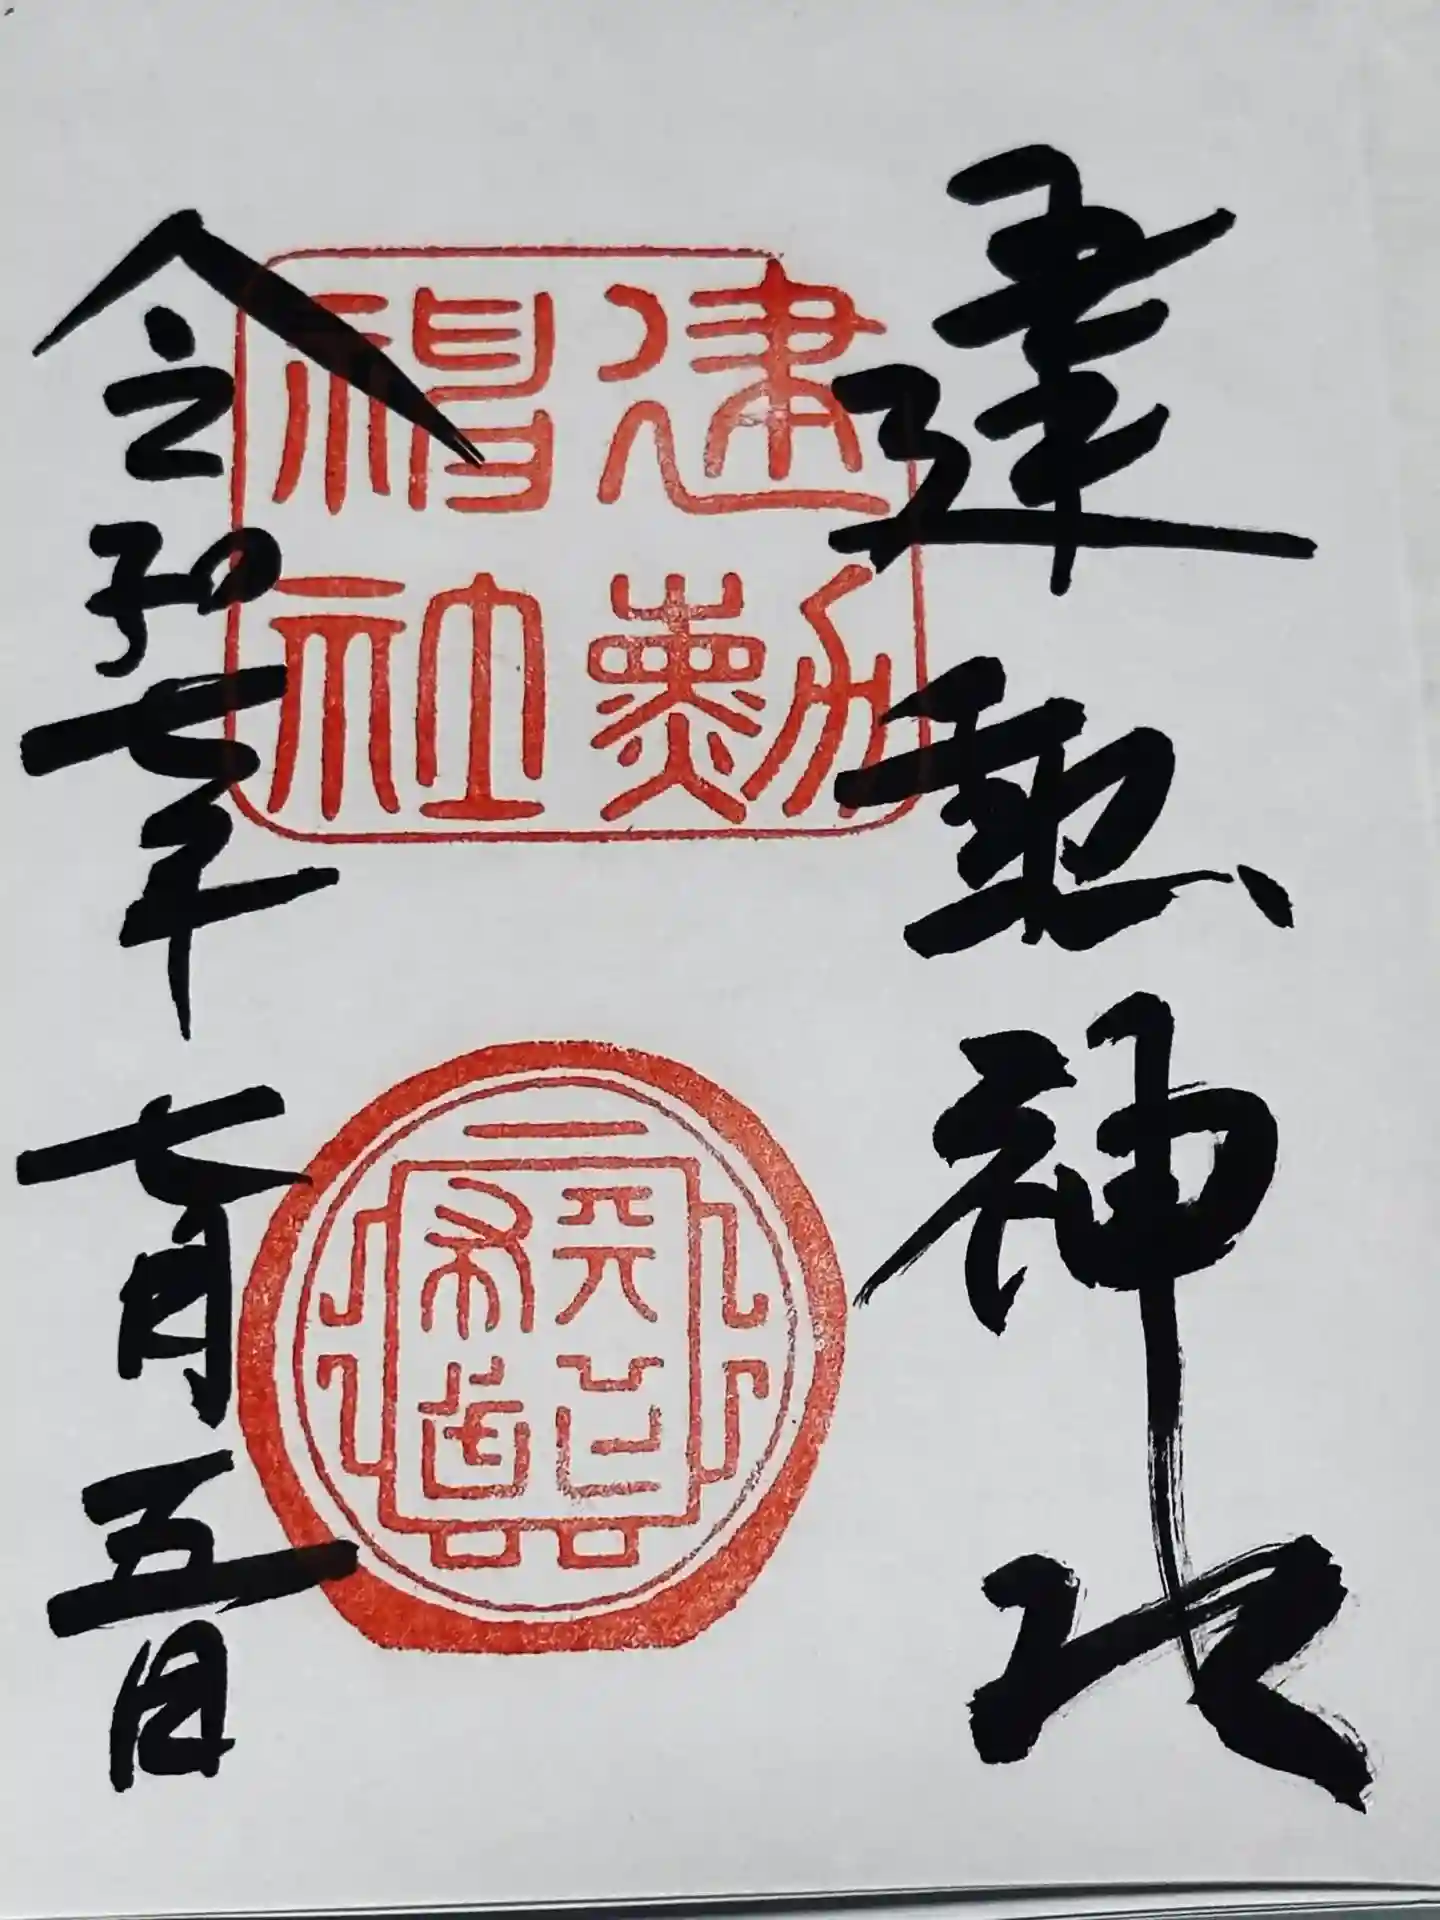 建勲神社
建勲神社
天下布武
令和七年七月五日